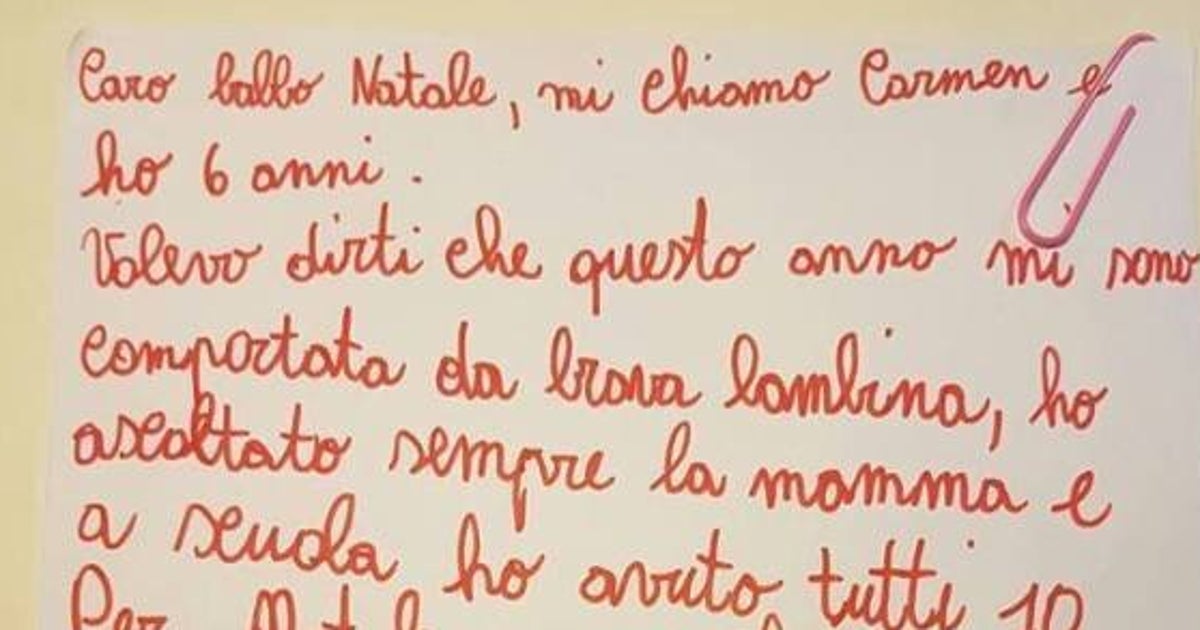 Caro babbo Natale, mi chiamo Carmen e
ho 6 anni.
Volevo dirti che questo anno mi sono
comportata da brava bambina, ho
ascoltato sempre la mamma e
a scuola ho avuto tutti 10
Per